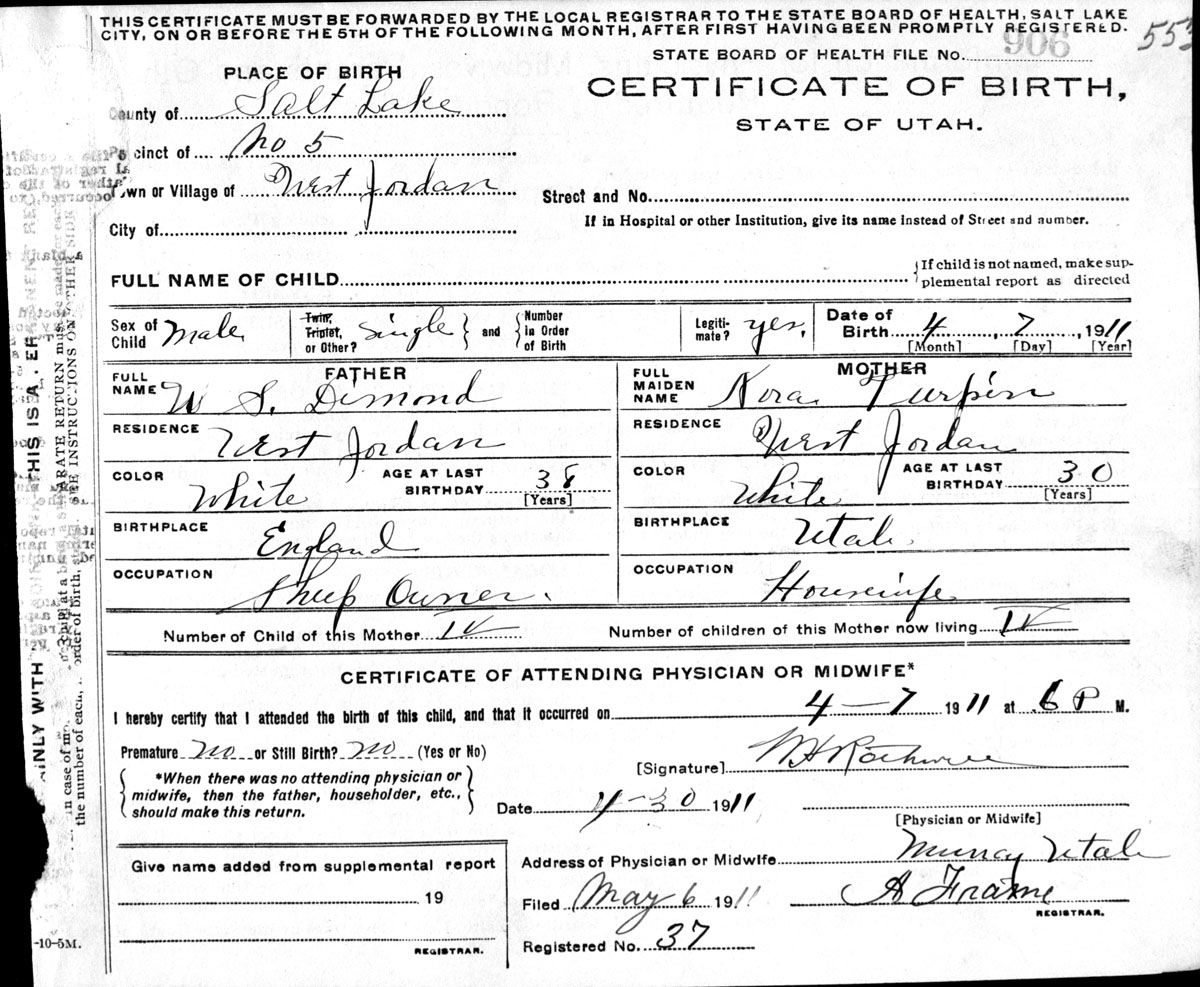 THIS CERTIFICATE MUST BE FORWARDED BY THE LOCAL REGISTRAR TO THE STATE BOARD OF HEALTH, SALT LAKE
CITY, ON OR BEFORE THE 5TH OF THE FOLLOWING MONTH, AFTER FIRST HAVING BEEN PROMPTLY REGISTERED.
STATE BOARD OF HEALTH FILE No. 906
PLACE OF BIRTH
CERTIFICATE OF BIRTH,
STATE OF UTAH.
County of Salt Lake
Precinct of No 5
Town or Village of West Jordan
Street and No.
If in Hospital or other Institution, give its name instead of Street and number.
City of
FULL NAME OF CHILD
If child is not named, make sup-
plemental report as directed
Sex of Child Male
Twin, Triplet, or Other? Single and Number in Order of Birth
Legiti-mate? yes.
Date of Birth 4, 7, 1911
[Month] [Day] [Year]
FATHER
FULL NAME W S. Dimond
MOTHER
FULL MAIDEN NAME Nora Turpin
RESIDENCE West Jordan
RESIDENCE West Jordan
COLOR White AGE AT LAST BIRTHDAY 38 [Years]
COLOR White AGE AT LAST BIRTHDAY 30 [Years]
BIRTHPLACE England
BIRTHPLACE Utah
OCCUPATION Sheep Owner.
OCCUPATION Housewife
Number of Child of this Mother IV
Number of children of this Mother now living IV
CERTIFICATE OF ATTENDING PHYSICIAN OR MIDWIFE*
I hereby certify that I attended the birth of this child, and that it occurred on 4-7 1911 at 6 P M.
Premature no or Still Birth? no (Yes or No)
*When there was no attending physician or
midwife, then the father, householder, etc.,
should make this return.
[Signature]
Date 4-30 1911
[Physician or Midwife]
Give name added from supplemental report
19
REGISTRAR.
Address of Physician or Midwife Murray Utah
Filed May 6 1911 A Frame
REGISTRAR.
Registered No. 37
-10-5M.